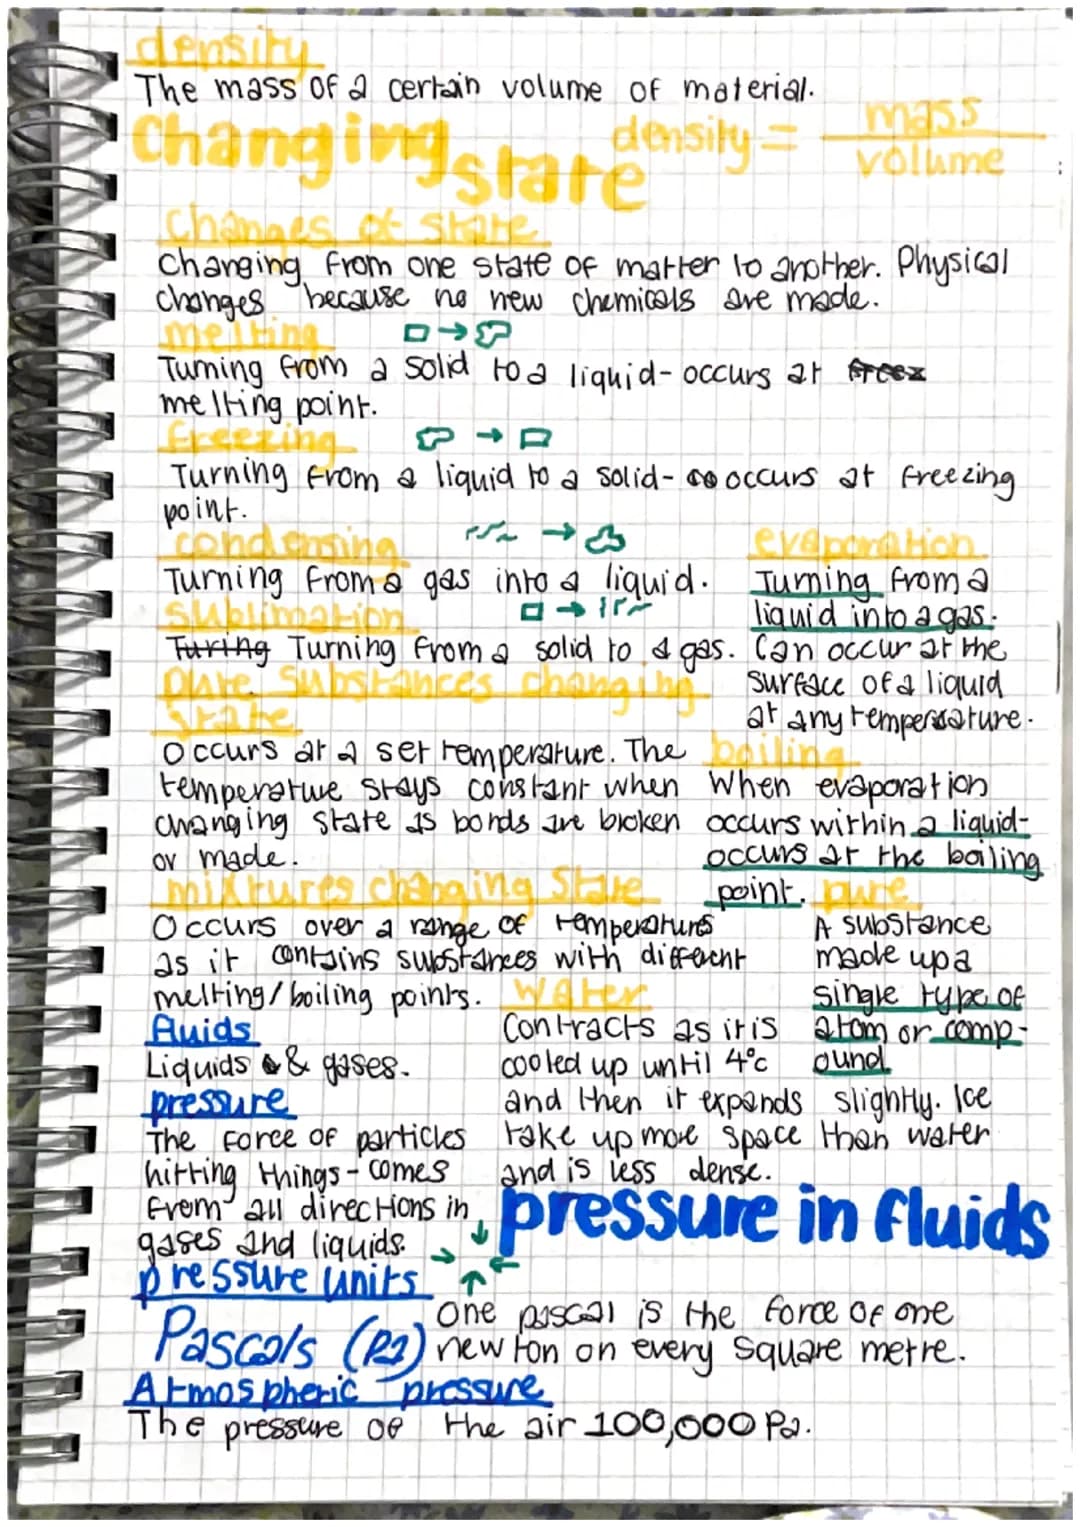 density
The mass of a certain volume of material.
density = mass
volume
changing
state
Changes of state
Changing from one state of matter to another. Physical
changes because no new chemicals are made.
melting
Turning from a solid to a liquid - occurs at freez
melting point.
freezing
Turning from a liquid to a solid - occurs at freezing
point.
condensing
Turning from a gas into a liquid.
sublimation
Turing Turning from a solid to a gas.
evaporation
Turning from a
liquid into a gas.
Can occur at the
surface of a liquid
at any temperature.
pure substances changing
state
Occurs at a set temperature. The
temperature stays constant when
changing state as bonds are broken
or made.
boiling
When evaporation
occurs within a liquid-
occurs at the boiling
point.
mixtures changing state
Occurs over a range of temperatures
as it contains substances with different
melting/boiling points.
pure
A substance
made up a
single type of
atom or comp-
ound
water
Contracts as it is
cooled up until 4°c
and then it expands slightly. Ice
take up more space than water
and is less dense.
fluids
Liquids & gases.
pressure
The force of particles
hitting things - comes
from all directions in
gases and liquids.
pressure in fluids
pressure units
Pascals (Pa)
One pascal is the force of one
newton on every square metre.
Atmospheric pressure
The pressure of the air 100,000 Pa.